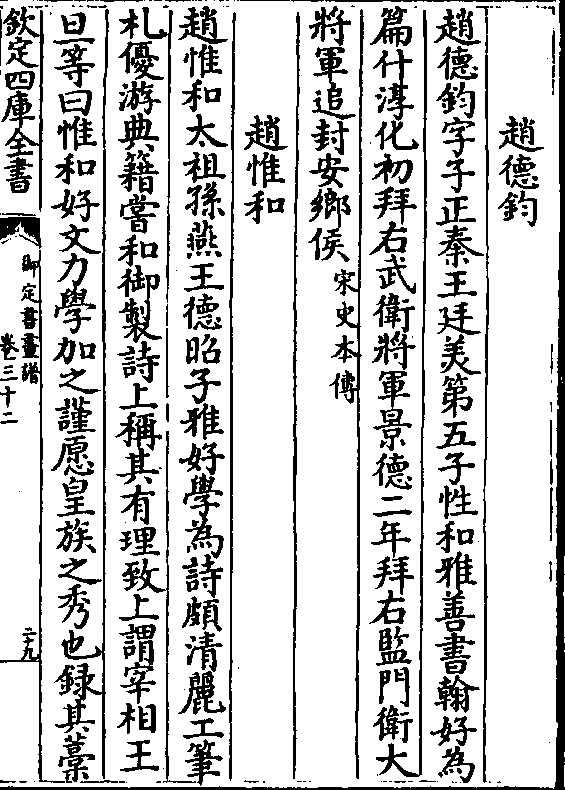 趙德鈞
趙德鈞字子正秦王廷美第五子性和雅善書翰好為
篇什淳化初拜右武衛將軍景德二年拜右監門衛大
將軍追封安鄉侯宋史本傳
趙惟和
趙惟和太祖孫燕王德昭子雅好學為詩頗清麗工筆
札優游典籍嘗和御製詩上稱其有理致上謂宰相王
旦等曰惟和好文力學加之謹愿皇族之秀也録其藁
欽定四庫全書
御定書畫譜
卷三十二
二十九